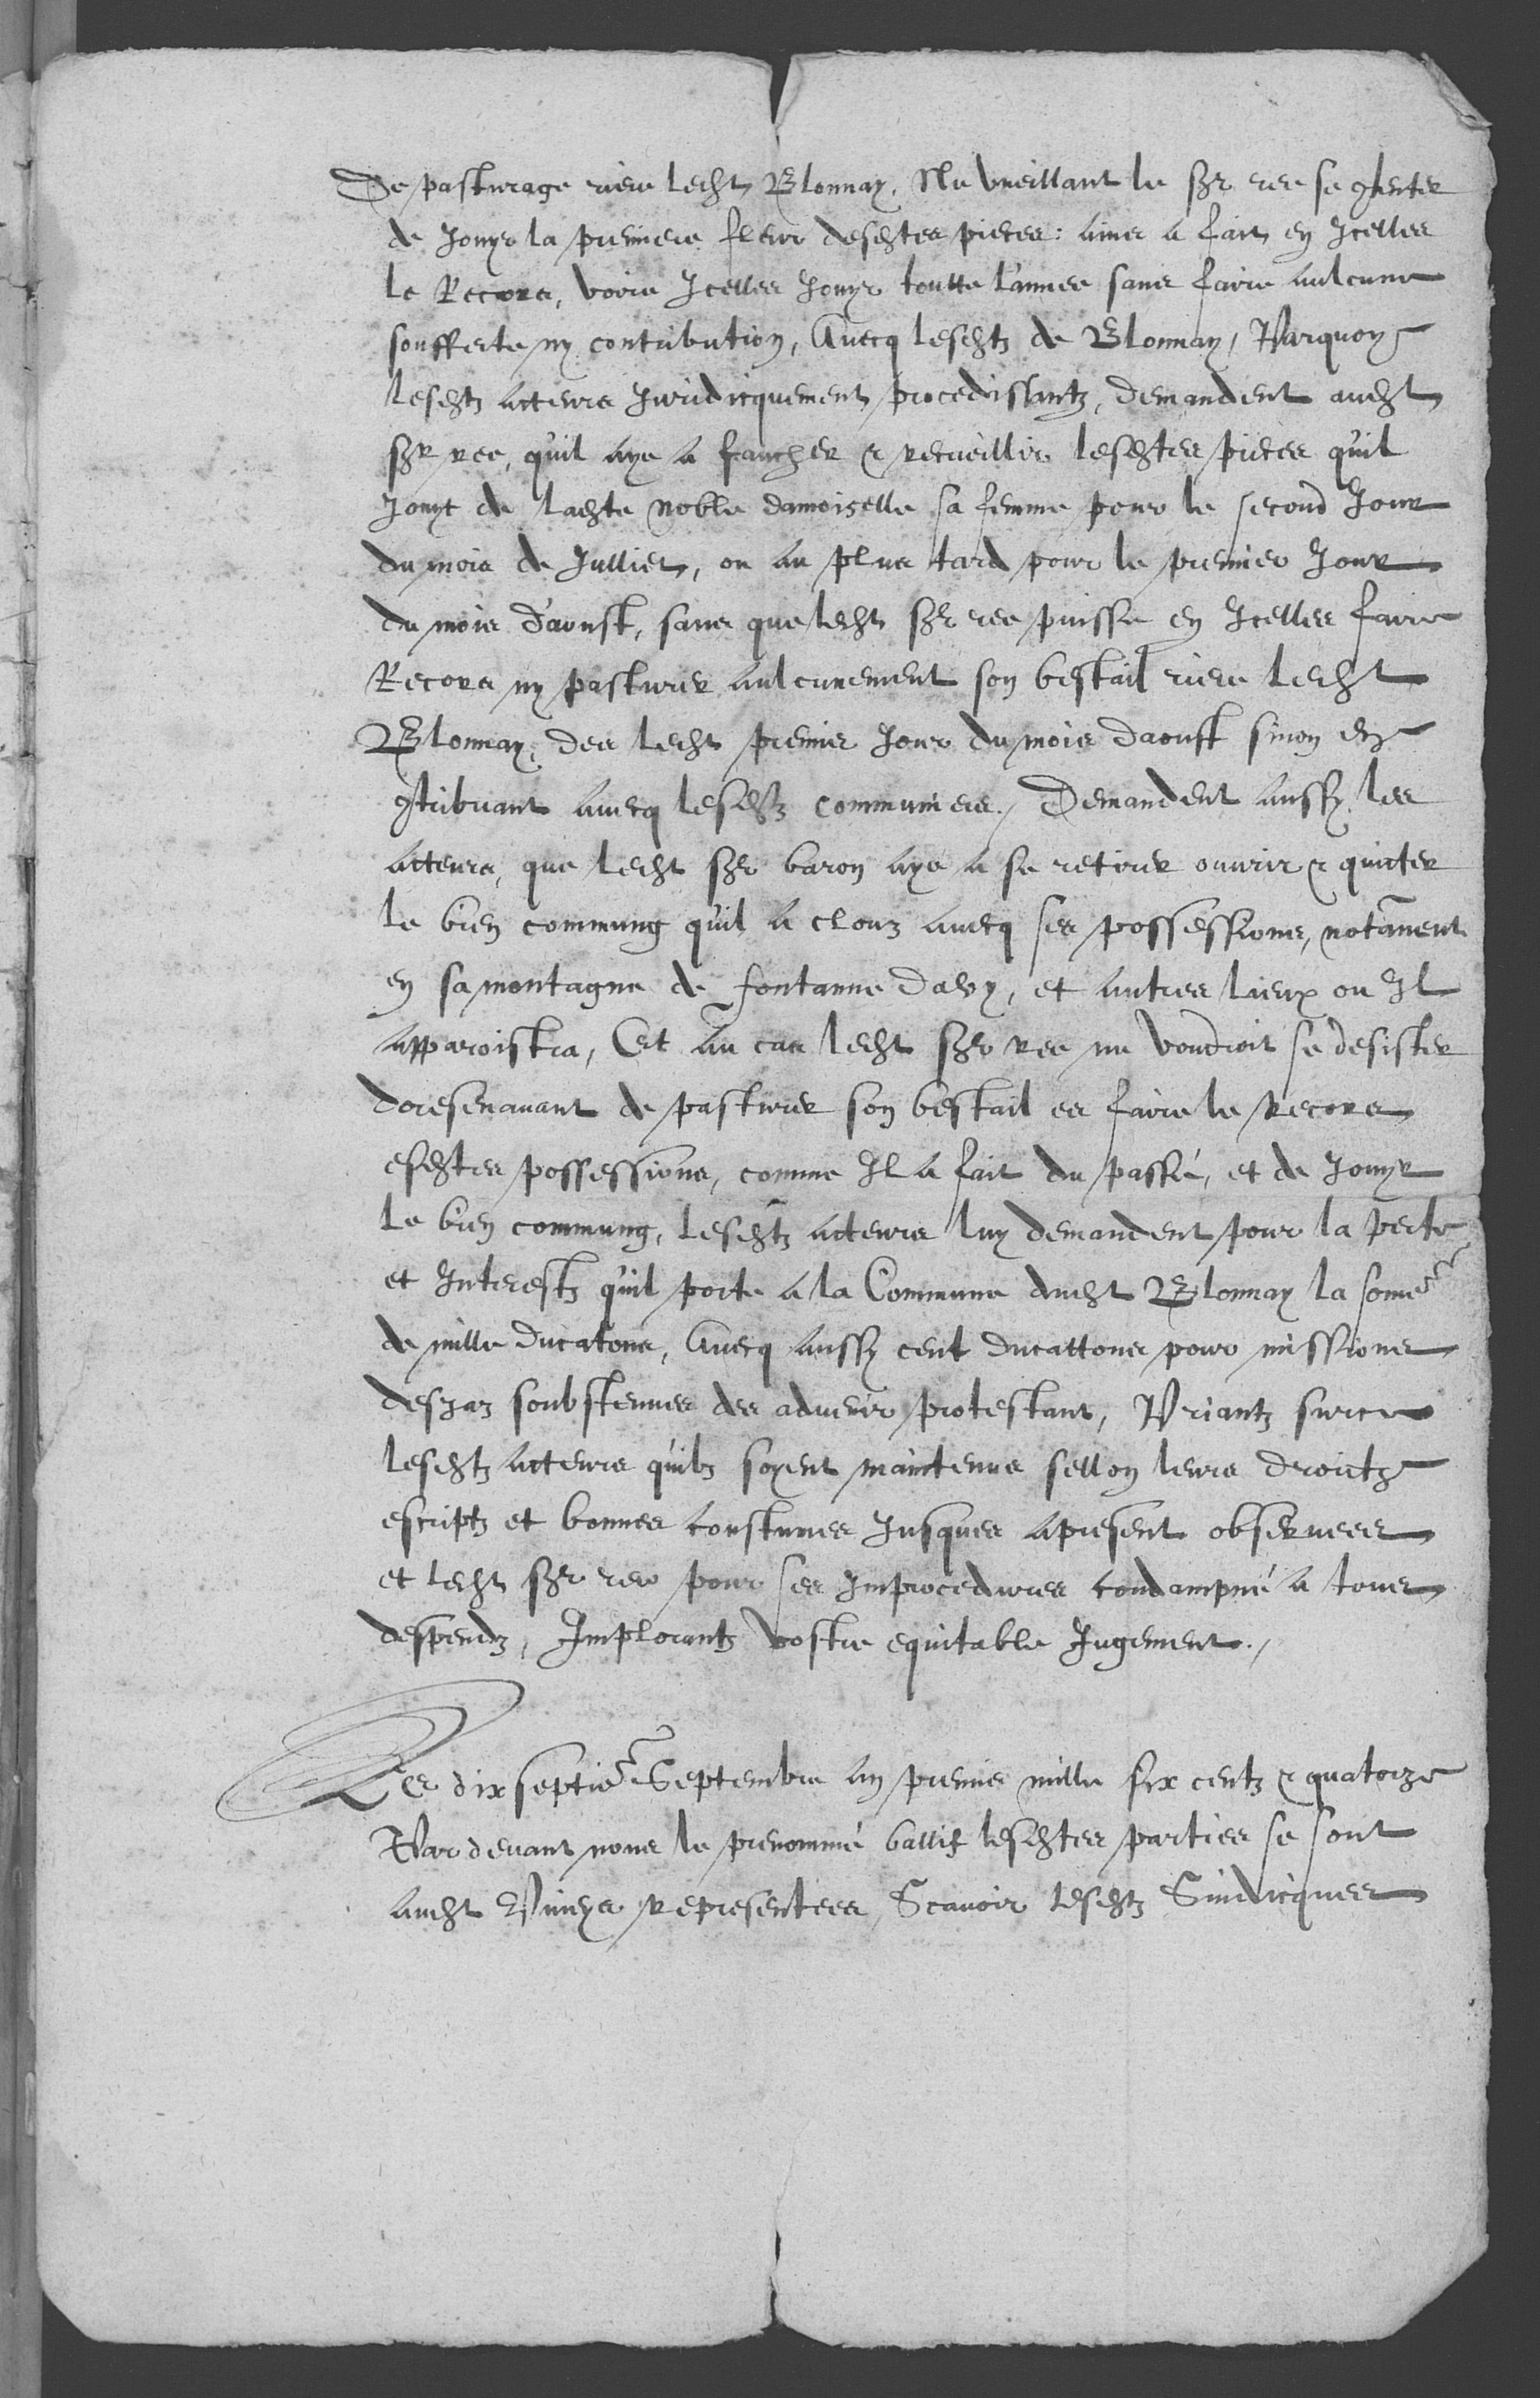 De pasturage riere lecht Blonnay, Ne vueillant le sgr ree se gtenter
de Jouyr la premiere fleur deschtes pieces: ains a fait en Jcelles
le Recors, voire Jcelles Jouyr toutte l'annee sans faire aulcune
soufferte ny contribution, Auecq leschtz de Blonnay, Parquoy
leschtz acteurs Juridicquement procedissantz, demandent audht
sgr ree, qu'il aye a faucher & recueillir leschtes pieces qu'il
Jouyt de lachte Noble damoiselle sa femme pour le second Jour
du mois de Julliet, ou au plus tard pour le premier Jour
du mois d'aoust, sans que lecht sgr ree puisse en Jcelles faire
Recors ny pasturer aulcunement son bestail riere lecht
Blonnay, des lecht premier Jour du mois daoust sinon en
gtribuant auecq leschtz communiers. Demandent aussy les
acteurs, que lecht sgr baron aye a se retirer ouurir & quicter
le bien commung qu'il a clouz auecq ses possessions, notament
en sa montagne de fontanne Davy, et autres lieux ou Jl
apparoistra, Et au cas lecht sgr ree ne voudroit se desister
doresenauant de pasturer son bestail es faire le recors
eschtes possessions, comme Jl a fait du passé, et de Jouyr
le bien commung, leschtz acteurs luy demandent pour la perte
et Jnterestz qu'il porte a la Commune ducht Blonnay la some
de mille ducatons, Auecq aussy cent ducattons pour missions
desjaz soubstenues des aduenir protestant, Priantz surce
leschtz acteurs qu'ilz soyent maintenus sellon leurs droictz
escriptz et bonnes coustumes Jusques apresent obseruees
et lecht sgr ree pour ses Jmprocedures condampné a tous
despendz, Jmplorantz vostre equitable Jugement.
Le dix septie Septembre an premis mille six centz & quatorze
Par deuant nous le prenommé ballif leschtes parties se sont
aucht representees, Scauoir leschtz Sindicques